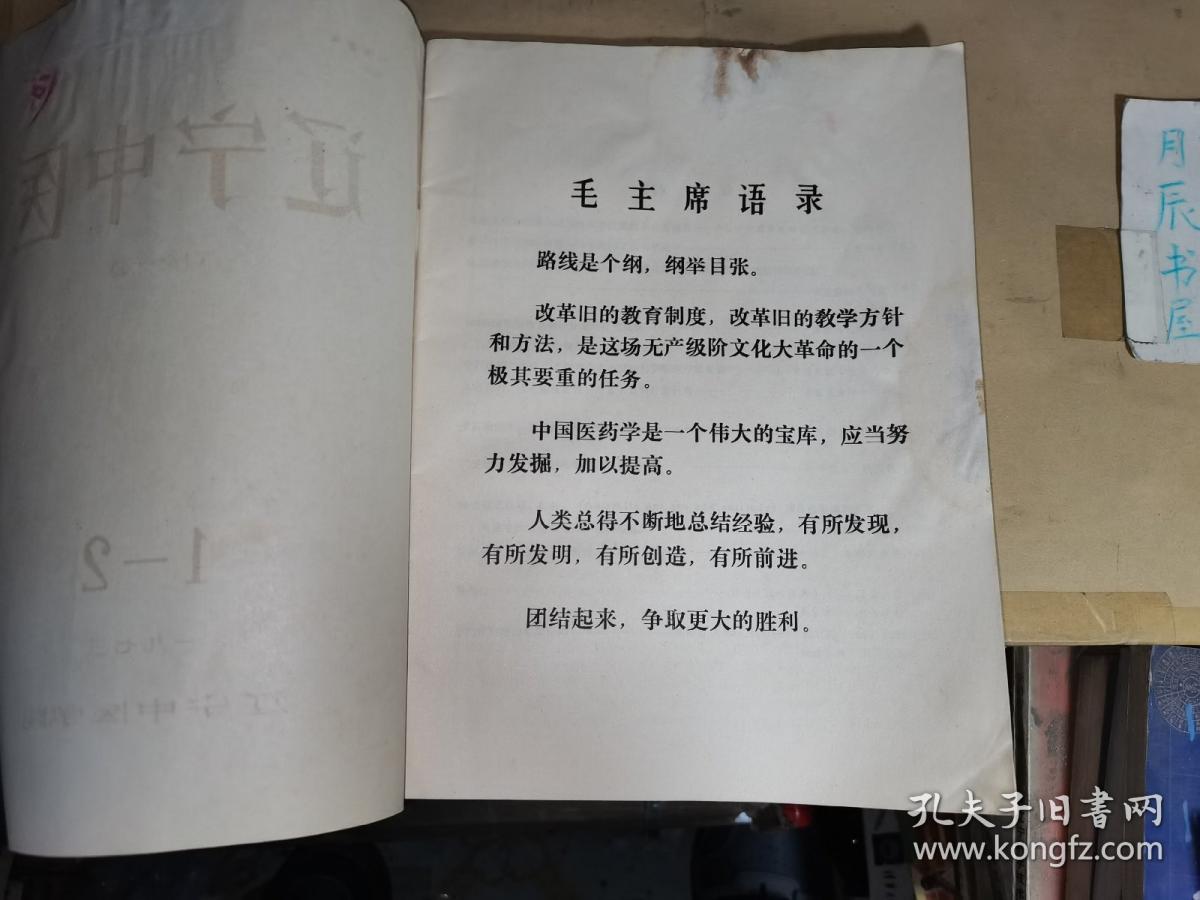 辽宁中医
1-2
一九七
辽宁中医学院
毛主席语录
路线是个纲，纲举目张。
改革旧的教育制度，改革旧的教学方针
和方法，是这场无产级阶文化大革命的一个
极其要重的任务。
中国医药学是一个伟大的宝库，应当努
力发掘，加以提高。
人类总得不断地总结经验，有所发现，
有所发明，有所创造，有所前进。
团结起来，争取更大的胜利。
月辰书屋
孔夫子旧书网
www.kongfz.com